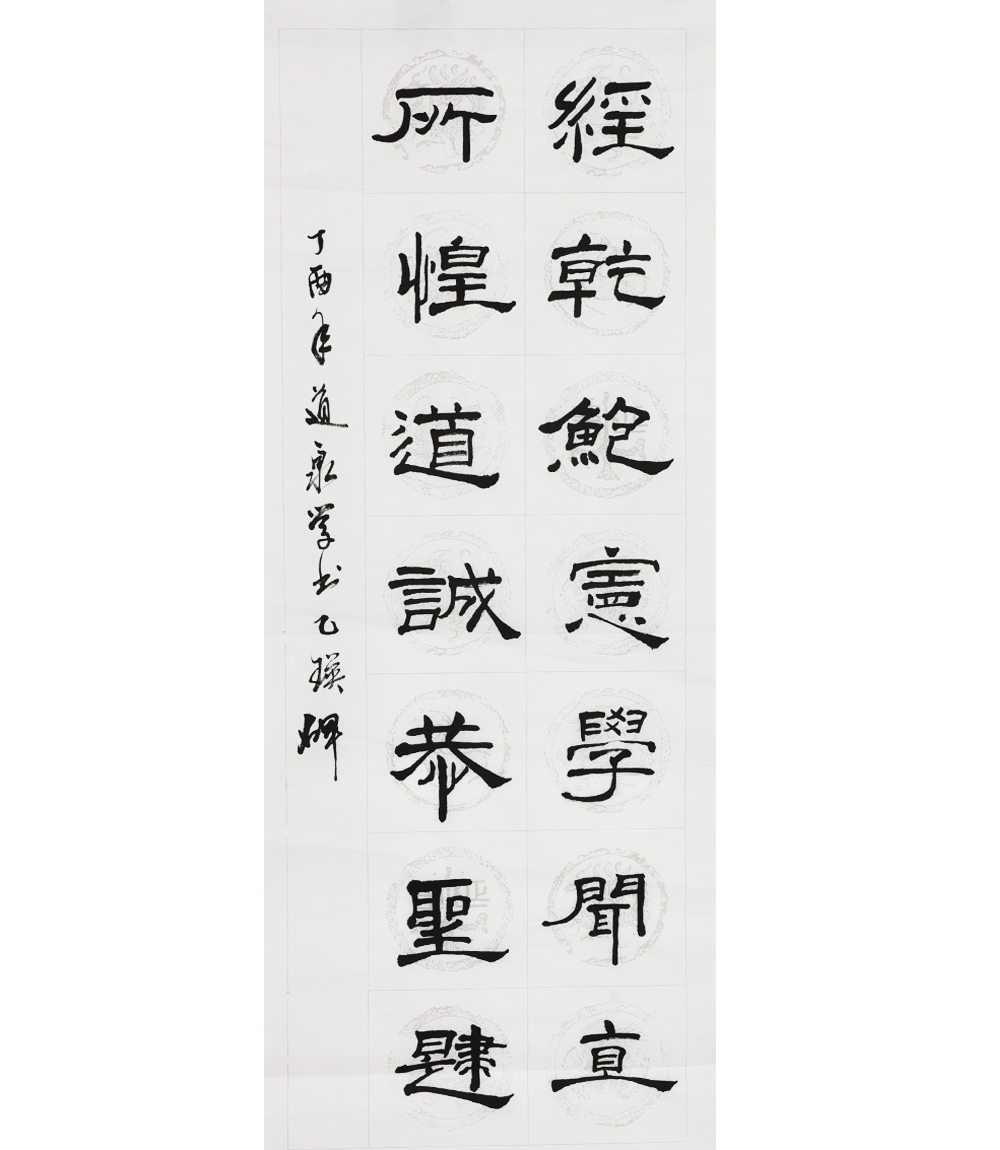 經乾鮑憲學聞宜
所惶道誠恭聖
丁酉年道泉学书乙瑛碑